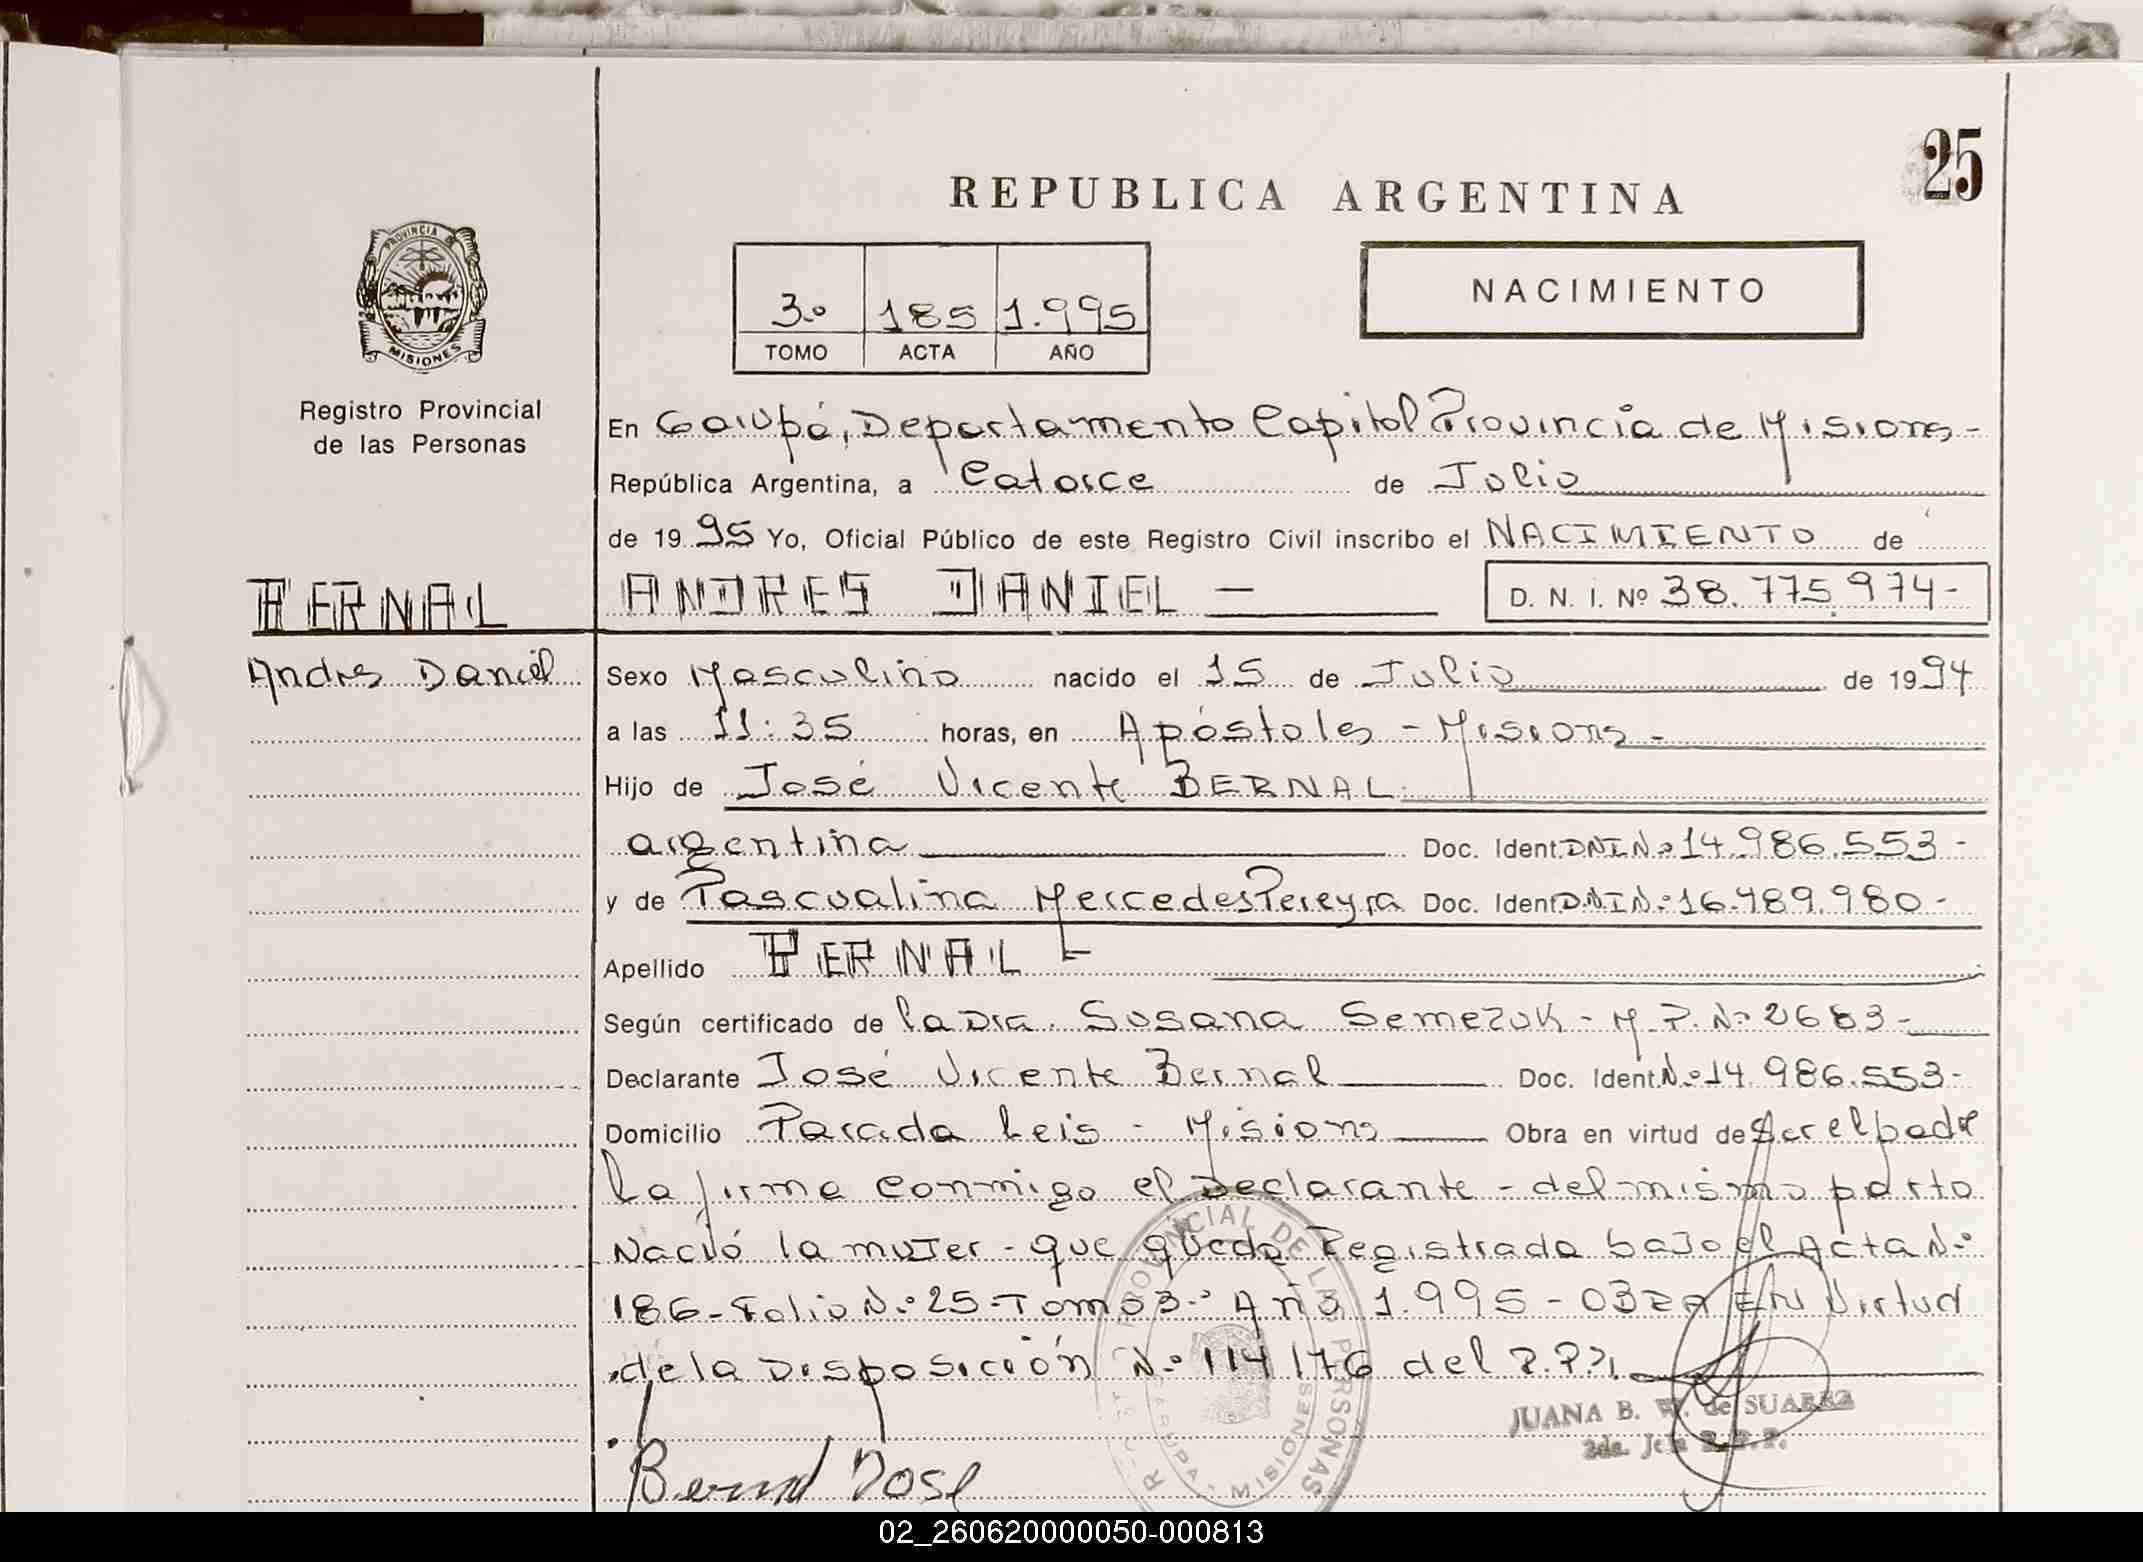 25
REPUBLICA ARGENTINA
PROVINCIA DE
MISIONES
Registro Provincial
de las Personas
3º 185 1.995
TOMO ACTA AÑO
NACIMIENTO
En Garupá, Departamento Capital Provincia de Misiones-
República Argentina, a Catorce de Julio
de 1995 Yo, Oficial Público de este Registro Civil inscribo el NACIMIENTO de
BERNAL
ANDRES DANIEL — D. N. I. Nº 38.775.974-
Andres Daniel
Sexo Masculino nacido el 15 de Julio de 1994
a las 11:35 horas, en Apóstoles - Misiones -
Hijo de José Vicente BERNAL
argentina Doc. Ident. DNI Nº 14.986.553-
y de Pascualina Mercedes Pereyra Doc. Ident. D.N.I.Nº 16.489.980-
Apellido BERNAL -
Según certificado de la Dra. Susana Semezuk - M.P. Nº 2683-
Declarante José Vicente Bernal Doc. Ident. Nº 14.986.553-
Domicilio Parada Leis - Misiones Obra en virtud de Ser el padre
La firma conmigo el Declarante - del mismo parto
Nació la mujer - que queda Registrada bajo el Acta Nº
186 - Folio Nº 25 - Tomo 3º Año 1.995 - OBRA EN Virtud
de la Disposición Nº 114/76 del R.P.P.
JUANA B. W. de SUAREZ
2da. Jefa R.P.P.
PROVINCIAL DE LAS PERSONAS
GARUPA - MISIONES
Bernal José
02_260620000050-000813